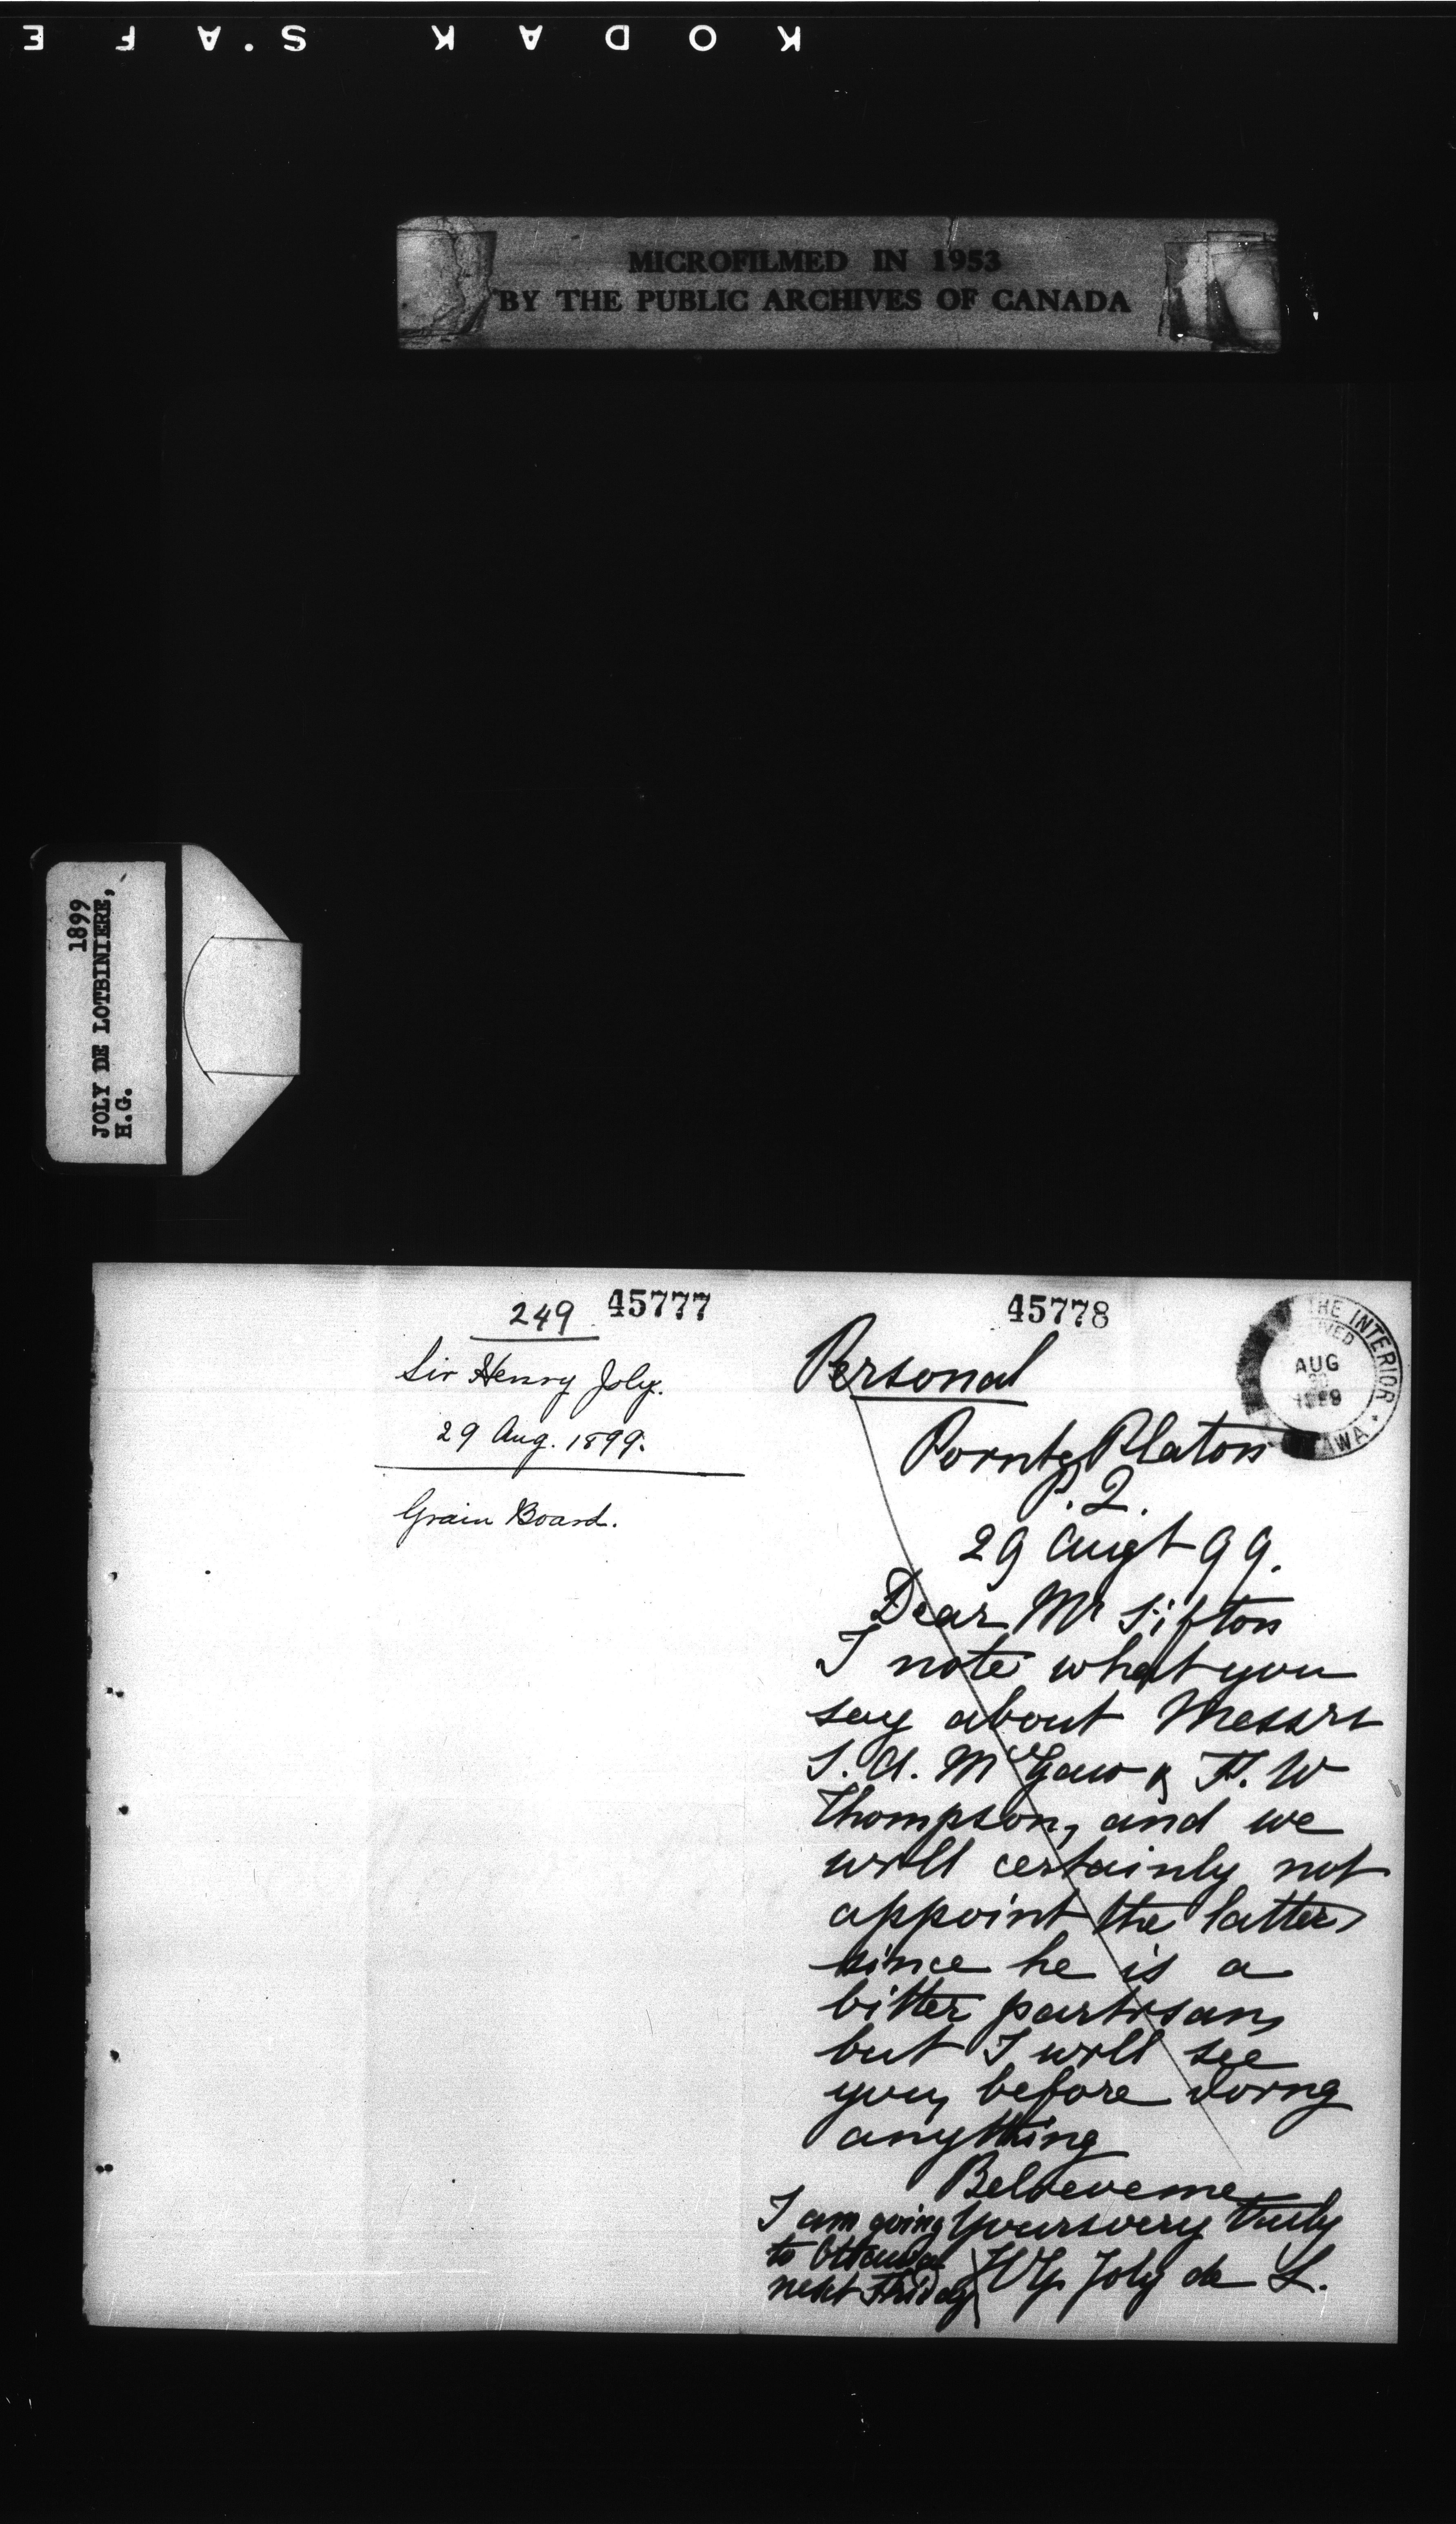 KODAK S.A F E
MICROFILMED IN 1953
BY THE PUBLIC ARCHIVES OF CANADA
1899
JOLY DE LOTBINIERE,
H.G.
249 45777
Sir Henry Joly.
29 Aug. 1899.
Grain Board.
45778
THE INTERIOR
AUG
1899
Personal
Pointe Platon
P.Q.
29 Augt 99.
Dear Mr Sifton
I note what you
say about Messrs
S. A. McGaw & F. W
Thompson, and we
will certainly not
appoint the latter
since he is a
bitter partisan,
but I will see
you, before doing
anything
Believe me
yours very truly
HG Joly de L.
I am going
to Ottawa
next Friday